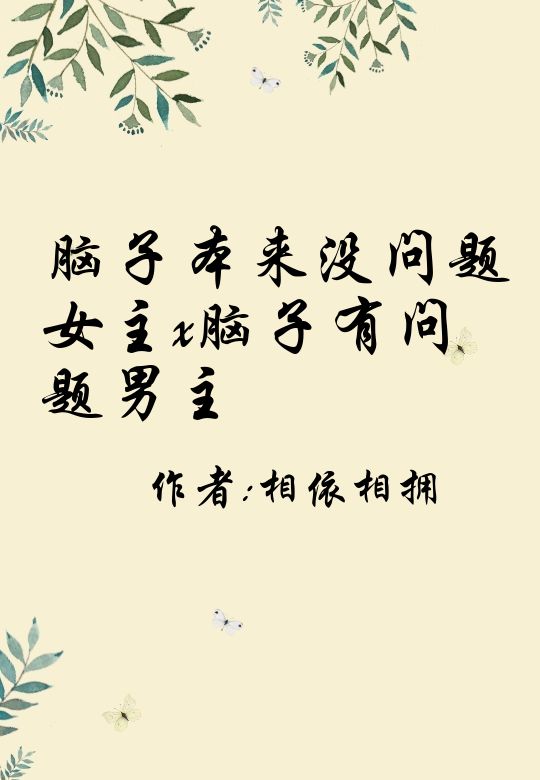 脑子本来没问题
女主x脑子有问
题男主
作者:相依相拥